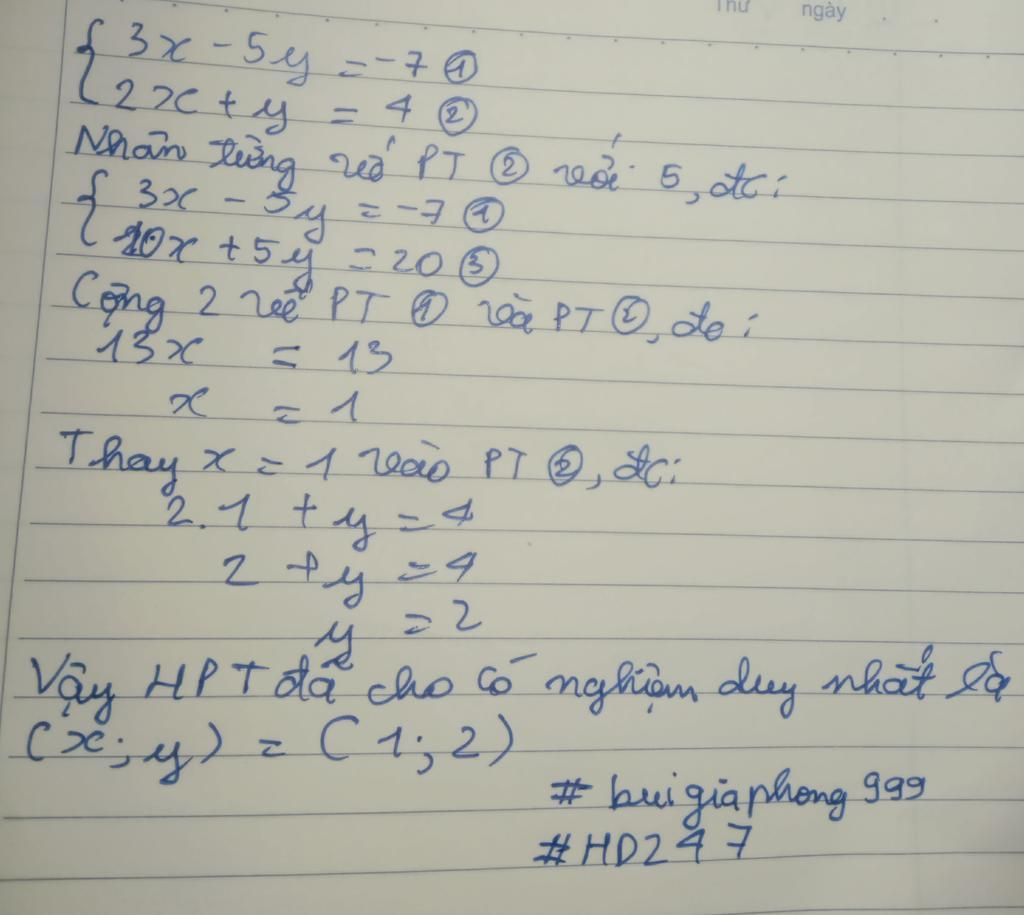 Thứ ngày . .
{ 3x - 5y = -7 ①
{ 2x + y = 4 ②
Nhân từng vế PT ② với 5, đc:
{ 3x - 5y = -7 ①
{ 10x + 5y = 20 ③
Cộng 2 vế PT ① và PT ②, đc:
13x = 13
x = 1
Thay x = 1 vào PT ②, đc:
2.1 + y = 4
2 + y = 4
y = 2
Vậy HPT đã cho có nghiệm duy nhất là
(x; y) = (1; 2)
# buigiaphong999
#HD247